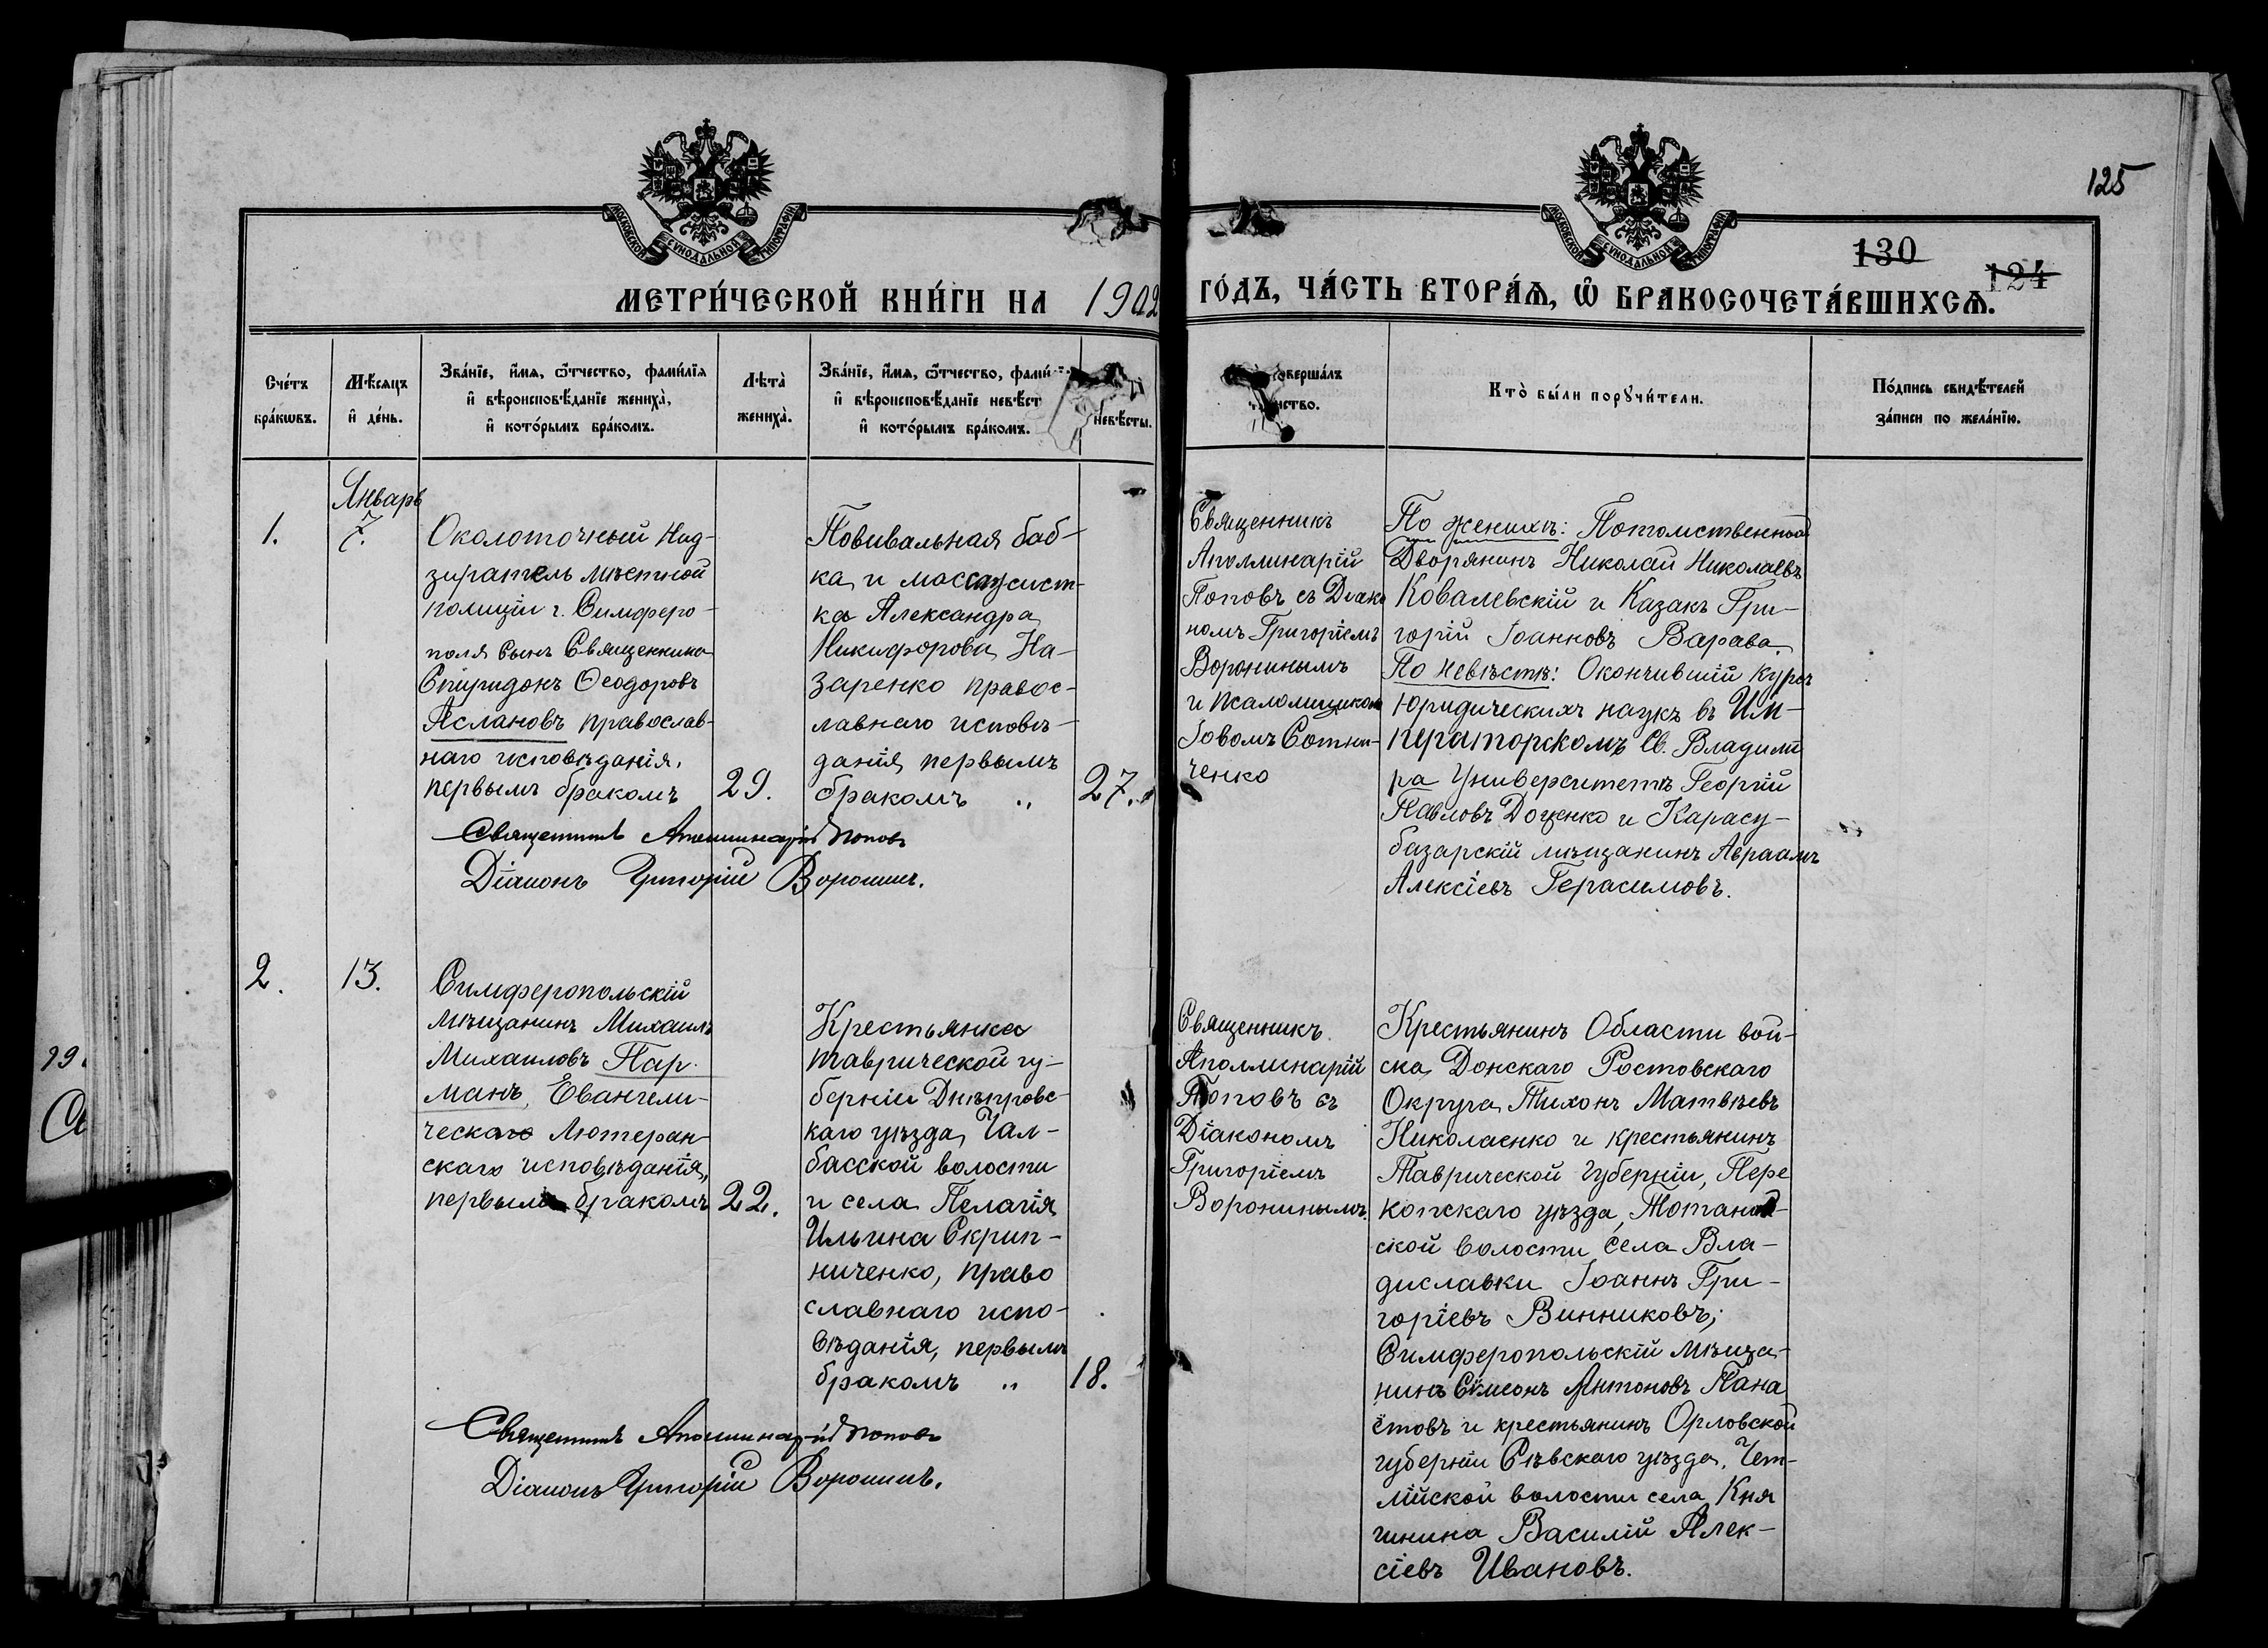 125
130
124
МОСКОВСКОЙ СУНОДАЛЬНОЙ ТИПОГРАФІИ
МОСКОВСКОЙ СУНОДАЛЬНОЙ ТИПОГРАФІИ
МЕТРИ́ЧЕСКОЙ КНИ́ГИ НА 1902 ГО́ДЪ, ЧА́СТЬ ВТОРА́Ѧ, Ѡ҆ БРАКОСОЧЕТА́ВШИХСѦ.
Сче́тъ
бра́кѡвъ.
Мѣ́сяцъ
и҆ де́нь.
Зва́нїе, и҆́мѧ, ѻ҆́тчество, фами́лїѧ
и҆ вѣроисповѣ́данїе жениха̀,
и҆ кото́рымъ бра́комъ.
Лѣта̀
жениха̀.
Зва́нїе, и҆́мѧ, ѻ҆́тчество, фами́
и҆ вѣроисповѣ́данїе невѣ́ст
и҆ кото́рымъ бра́комъ.
невѣ́сты.
соверша́лъ
нство.
Кто̀ бы́ли порꙋчи́тели.
По́дпись свидѣ́телей
за́писи по жела́нїю.
Январь
1.
7.
Околоточный Над-
зиратель мѣстной
полиціи г. Симферо-
поля сынъ Священника
Спиридонъ Ѳеодоровъ
Аслановъ православ-
наго исповѣданія,
первымъ бракомъ
29.
Повивальная баб-
ка и массажист-
ка Александра
Никифорова На-
заренко правос-
лавнаго исповѣ-
данія, первымъ
бракомъ "
27.
Священникъ Аполлинарій Поповъ
Діаконъ Григорій Воронинъ.
Священникъ
Аполлинарій
Поповъ съ Діако
номъ Григоріемъ
Воронинымъ
и псаломщикомъ
Іовомъ Сотни-
ченко
По женихѣ: Потомственной
Дворянинъ Николай Николаевъ
Ковалевскій и Казакъ Гри-
горій Іоанновъ Варава.
По невѣстѣ: Окончившій курсъ
юридическихъ наукъ въ Им-
ператорскомъ Св. Владими
ра Университетѣ Георгій
Павловъ Доценко и Карасу-
базарскій мѣщанинъ Авраамъ
Алексіевъ Герасимовъ.
2.
13.
Симферопольскій
мѣщанинъ Михаилъ
Михаиловъ Пар-
манъ, Евангели-
ческаго Лютеран-
скаго исповѣданія,
первымъ бракомъ
22.
Крестьянка
таврической гу-
берніи Днѣпровс-
каго уѣзда, Чал-
басской волости
и села Пелагія
Ильина Скрип-
ниченко, право
славнаго испо-
вѣданія, первымъ
бракомъ "
18.
Священникъ Аполлинарій Поповъ
Діаконъ Григорій Воронинъ.
Священникъ
Аполлинарій
Поповъ съ
Діакономъ
Григоріемъ
Воронинымъ.
Крестьянинъ Области вой-
ска Донскаго Ростовскаго
Округа Тихонъ Матвѣевъ
Николаенко и крестьянинъ
Таврической губерніи, Пере
копскаго уѣзда,
ской волости села Вла-
диславки Іоаннъ Гри-
горіевъ Винниковъ;
Симферопольскій мѣща-
нинъ Сѵмеонъ Антоновъ Пана
ётовъ и крестьянинъ Орловской
губерніи Сѣвскаго уѣзда,
волости села Кня
гинина Василій Алек-
сіевъ Ивановъ.